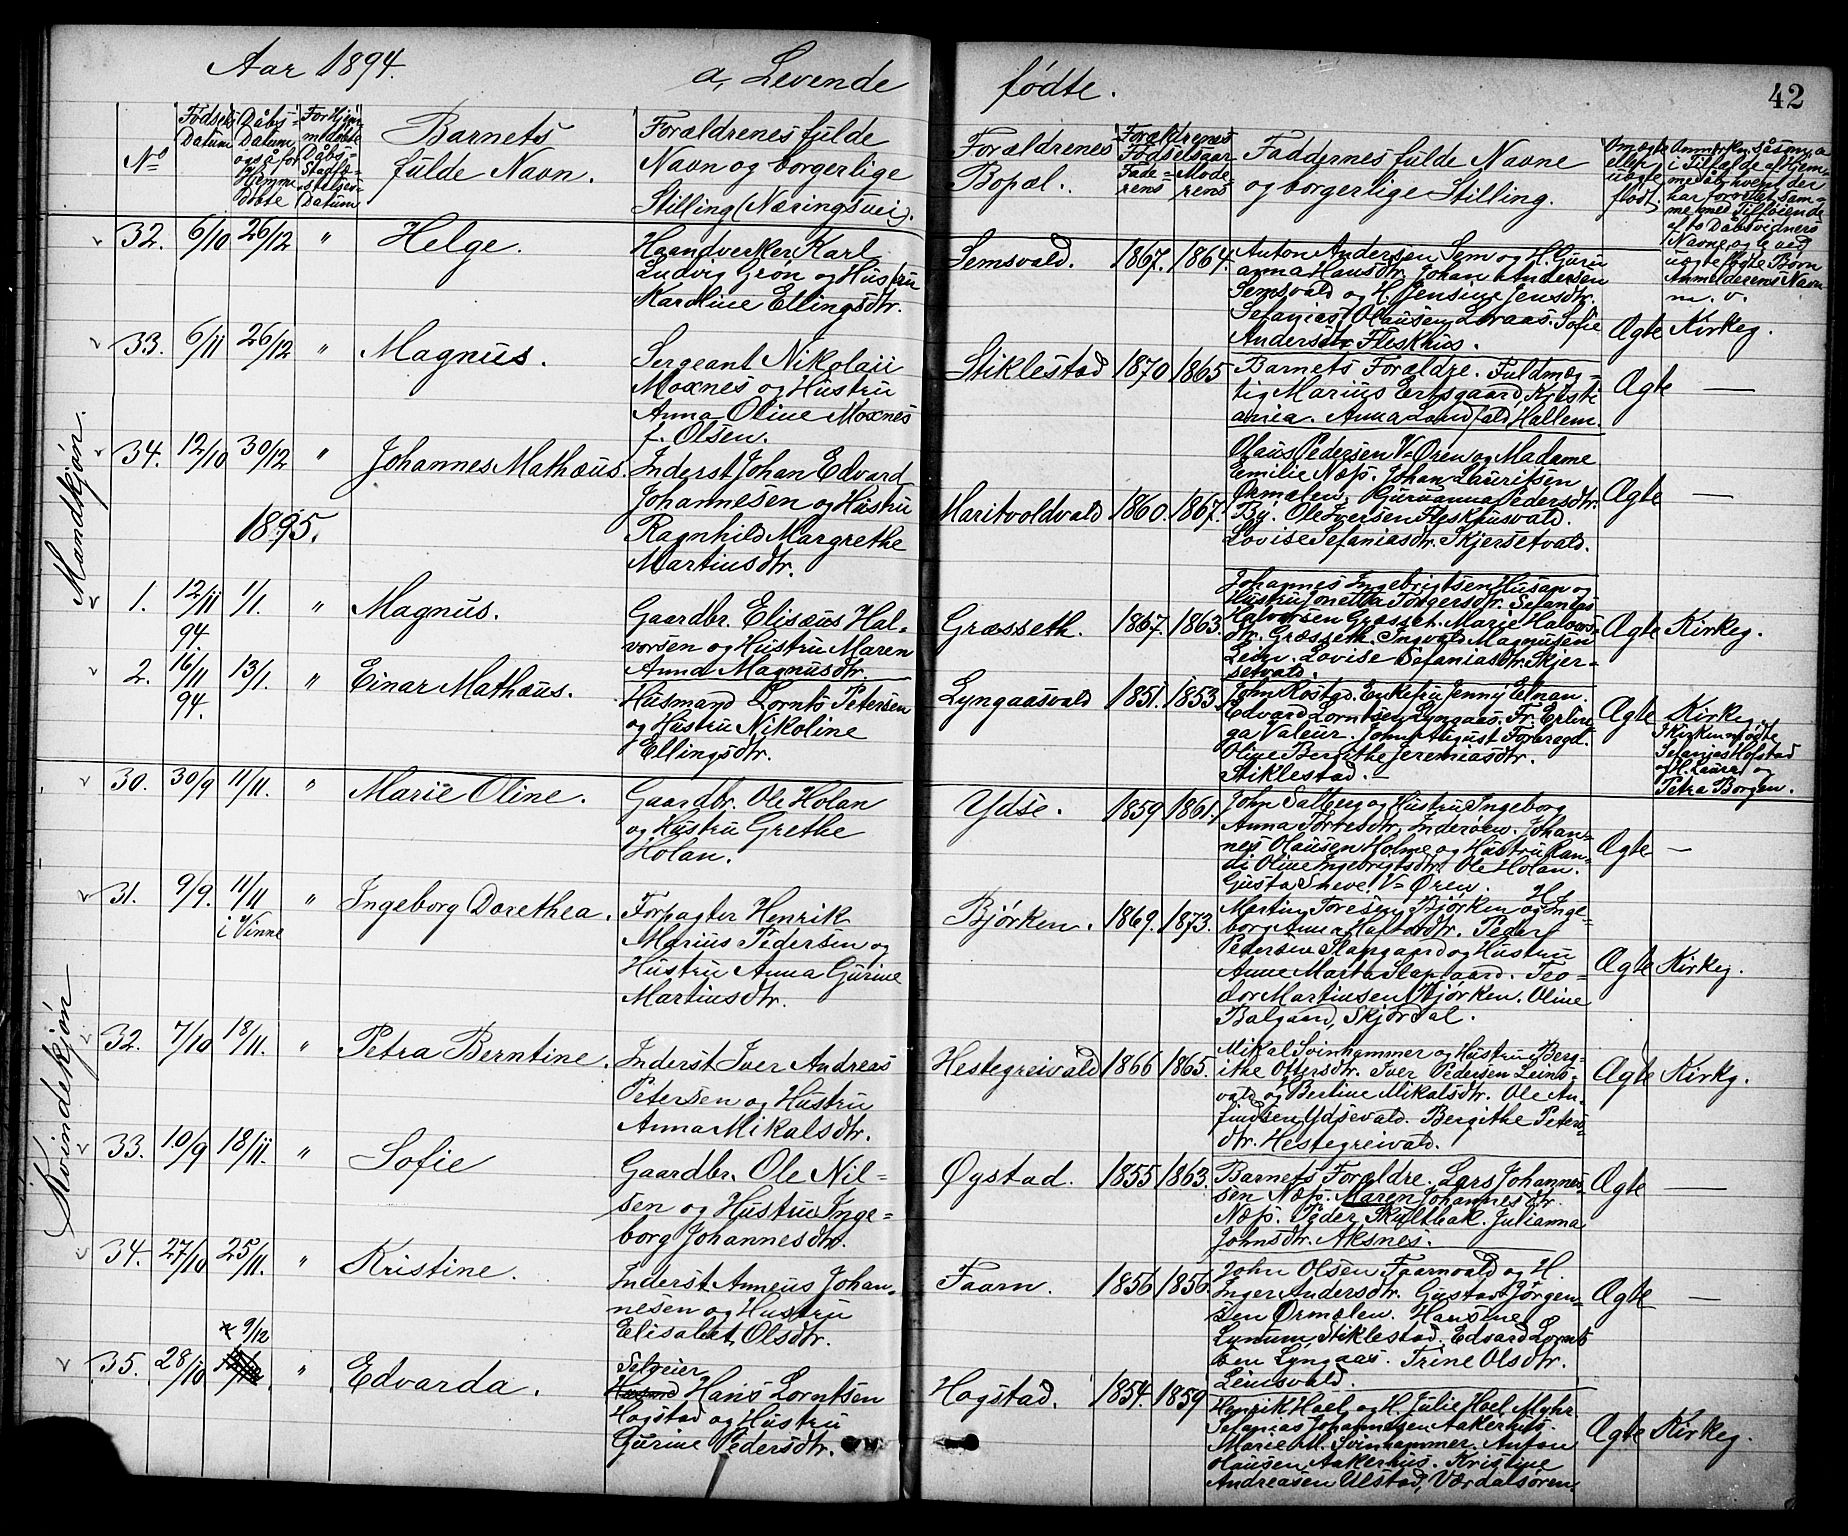 Aar 1894. a, Levende fødte. 42
No
Fødsels
Datum
Dåbs-
Datum
også for
Hjemme
døbte
For Hjem
medøbte
Dåbs-
Stadfæ-
stelses-
Datum
Barnets
fulde Navn.
Forældrenes fulde
Navn og borgerlige
Stilling (Næringsvei).
Forældrenes
Bopæl.
Forældrenes
Fødselsaar
Fade-
rens
Mode-
rens
Faddernes fulde Navne
og borgerlige Stilling.
Om ægte
eller
uægte
født.
Anmærkn. såsom
i Tilfælde af Hjem-
medåb hvem der
har forrettet sam-
me med Tilføiende
af to Dåbsvidners
Navne, og ved
uægte fødte Børn
Anmelderens Navn
m. v.
Mandkjøn.
32. 6/10 26/12 " Helge.
Haandverker Karl
Ludvig Grøn og Hustru
Karoline Ellingsdtr.
Semsvald. 1867. 1864.
Anton Andersen Sem og H. Guru
anna Hansdtr. Johan Andersen
Semsvald og H. Jensine Jensdtr.
Sefanias Olausen Loraas. Sofie
Andersdtr Fleskhus.
Ægte Kirkeg.
33. 6/11 26/12 " Magnus.
Sergeant Nikolaii
Moxnes og Hustru
Anna Oline Moxnes
f. Olsen.
Stiklestad 1870 1865
Barnets Forældre. Fuldmæg-
tig Marius Ertsgaard Kristi
ania. Anna Landfald Hallem.
Ægte —
34. 12/10 30/12 " Johannes Mathæus.
Inderst Johan Edvard
Johannesen og Hustru
Ragnhild Margrethe
Martinusdtr.
Maritvoldvald 1860. 1867.
Olaus Pedersen V=Øren og Madame
Emilie Næss. Johan Lauritsen
Ørmelen. Guruanna Pedersdtr.
By. Ole Iversen Fleskhusvald.
Lovise Sefaniasdtr. Skjersetvald.
Ægte —
1895.
1. 12/11 94. 1/1. " Magnus.
Gaardbr. Elisæus Hal-
vorsen og Hustru Maren
Anna Magnusdtr.
Græsseth. 1867. 1863.
Johannes Ingebrigtsen Husan og
Hustru Jonetta Torgersdtr. Sefanias
Halvorsen Græsset. Marie Halvors-
dtr. Græsseth. Ingvald Magnusen
Lein. Lovise Sefaniasdtr. Skjer-
setvald.
Ægte Kirkeg.
2. 16/11 94. 13/1. " Einar Mathæus.
Husmand Lornts Petersen
og Hustru Nikoline
Ellingsdtr.
Lyngaasvald 1851. 1853.
John Rostad. Enkefru Jenny Elnan.
Edvard Lorntsen Lyngaas. Fr. Erlin
ga Valeur. John August Forbregd.
Oline Bergithe Jeremiasdtr.
Stiklestad. —
Ægte Kirkeg.
I Kirken mødte
Sefanias Hofstad
og H. Laura og
Petra Borgen.
Kvindekjøn
30. 30/9 11/11. " Marie Oline.
Gaardbr. Ole Holan
og Hustru Grethe
Holan.
Ydse. 1859 1861.
John Salberg og Hustru Ingeborg
Anna Torresdtr. Inderøen. Johan-
nes Olausen Holme og Hustru Ran-
di Oline Ingebrigtsdtr. Ole Holan.
Gusta Sheve. V=Øren.
Ægte —
31. 9/9. 11/11 i Vinne " Ingeborg Dorethea.
Forpagter Henrik
Marius Pedersen og
Hustru Anna Gurine
Martinusdtr.
Bjørken. 1869. 1873.
Martin Toresen Bjørken og H. Inge-
borg Anna Larsdtr. Peder
Pedersen Slapgaard og Hustru
Anne Marta Slapgaard. Teo-
dor Martinsen Bjørken. Oline
Balgaard, Skjørdal.
Ægte Kirkeg.
32. 7/10 18/11. " Petra Berntine.
Inderst Iver Andreas
Petersen og Hustru
Anna Mikalsdtr.
Hestegreivald 1866 1865.
Mikal Svinhammer og Hustru Berg-
ithe Ottersdtr. Iver Pedersen Leins-
vald og Bertine Mikalsdtr. Ole An-
findsen Ydsevald. Bergithe Peters-
dtr. Hestegreivald.
Ægte Kirkg.
33. 10/9 18/11. " Sofie
Gaardbr. Ole Nil-
sen og Hustru Inge-
borg Johannesdtr.
Øgstad. 1855 1863.
Barnets Forældre. Lars Johannes-
sen Næss. Maren Johannesdtr.
Næss. Peder Kultbak. Julianna
Johnsdtr. Aksnes.
Ægte —
34. 27/10 25/11. " Kristine.
Inderst Anneus Johan-
nesen og Hustru
Elisabet Olsdtr.
Faarn. 1856 1856.
John Olsen Faarnvald og H.
Inger Andersdtr. Gustav Jørgen-
sen Ørmelen. Hansine
Lynum Stiklestad. Edvard Lornt
sen Lyngaas. Trine Olsdtr.
Leinsvald.
Ægte —
35. 28/10 9/12 " Edvarda.
Selveier
Husmand Hans Lorntsen
Hogstad og Hustru
Gurine Pedersdtr.
Hogstad. 1854. 1859
Henrik Hoel og H. Julie Hoel Myhr.
Sefanias Johannesen Aakerhus.
Marie M. Svinhammer. Anton
Olausen Aakerhus. Kristine
Andreasen Ulstad, Værdalsøren.
Ægte Kirkeg.